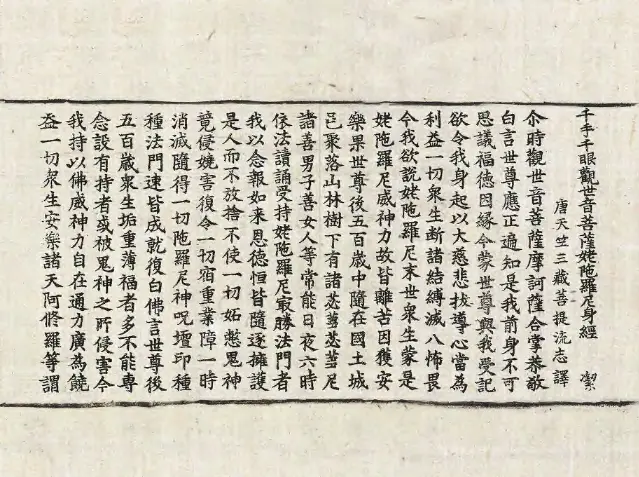 千手千眼觀世音菩薩姥陁羅尼身經 潔
唐天竺三藏菩提流志譯
尒時觀世音菩薩摩訶薩合掌恭敬
白言世尊應正遍知是我前身不可
思議福德因緣今蒙世尊與我受記
欲令我身起以大慈悲拔導心當為
利益一切衆生斷諸結縛滅八怖畏
今我欲說姥陁羅尼末世衆生蒙是
姥陁羅尼威神力故皆離苦因獲安
樂果世尊後五百歲中隨在國土城
邑聚落山林樹下有諸苾蒭苾蒭尼
諸善男子善女人等常能日夜六時
依法讀誦受持姥陁羅尼㝡勝法門者
我以念報如来恩德恒皆隨逐擁護
是人而不放捨不使一切妬憋鬼神
竟侵嬈害復令一切宿重業障一時
消滅隨得一切陁羅尼神呪壇印種
種法門速皆成就復白佛言世尊後
五百歲衆生垢重薄福者多不能專
念設有持者或被鬼神之所侵害今
我持以佛威神力自在通力廣為饒
益一切衆生安樂諸天阿脩羅等謂